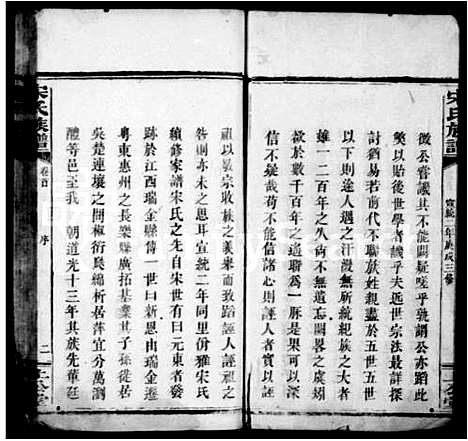 宋氏族譜
宣統二年庚戌三修
微公嘗議其不能闕疑嗟乎孰謂公亦蹈此
獘以貽後世學者乎夫遠世宗法最詳探
討猶易若前代不聯族姓親盡於五世五世
以下則途人遇之汗漫無所統紀族之大者
雖一二百年之久尚不無遺忘闕略之虞矧
於數千百年之遙聯爲一脈是果可
信哉苟不能信諸心則言者實以誣
祖以敬宗收族之義來而致蹈誣人誣祖之
咎則亦未之思耳宣統二年同里併雅宋氏
續修家譜宋氏之先自宋世有以元東者發
跡於江西瑞金縣傳一世曰新恩由瑞金遷
粤東惠州之長樂縣廣拓基業其子孫徙居
吳楚連壤之間極衍厖綿析居萍宜分萬瀏
醴等邑至我 朝道光十三年其族先輩廷
宋氏族譜
卷首
序
二